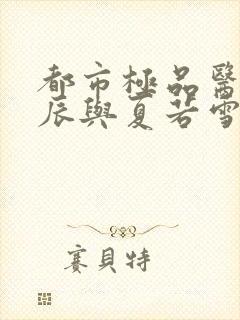 都市極品醫
辰與夏若雪
賽貝特